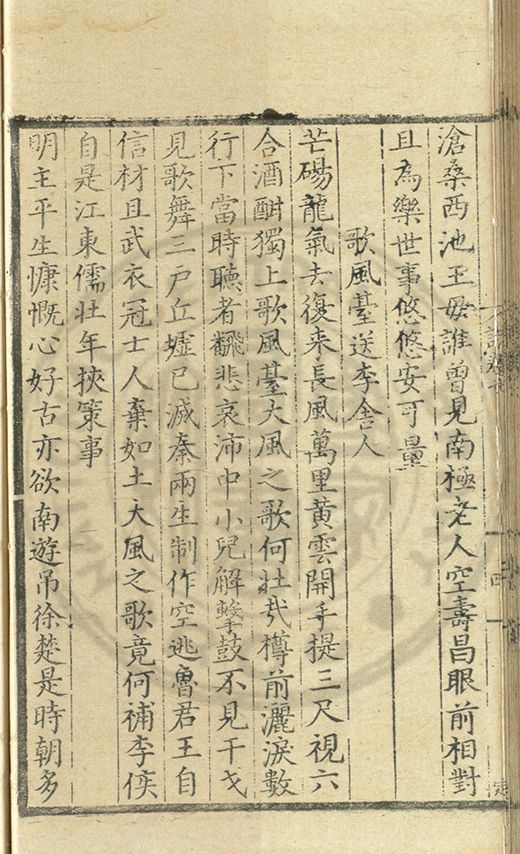 滄桑西池王母誰曾見南極老人空壽昌眼前相對
且為樂世事悠悠安可量
歌風臺送李舍人
芒碭龍氣去復来長風萬里黄雲開手提三尺視六
合酒酣獨上歌風臺大風之歌何壮㢤樽前灑淚數
行下當時聽者飜悲哀沛中小兒解擊鼓不見干戈
見歌舞三戸丘墟已滅秦兩生制作空逃魯君王自
信材且武衣冠士人棄如土大風之歌竟何補李侯
自是江東儒壮年挾策事
明主平生慷慨心好古亦欲南遊吊徐楚是時朝多